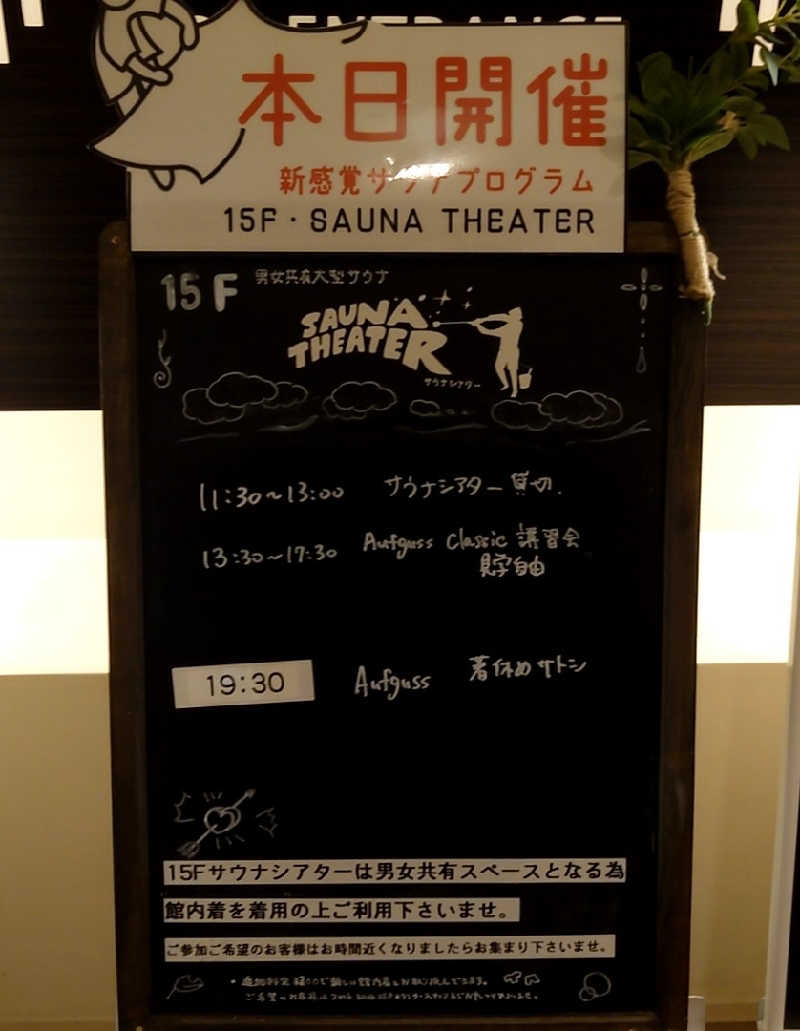 ENTRANCE
本日開催
新感覚サウナプログラム
15F・SAUNA THEATER
15F 男女共有大型サウナ
SAUNA
THEATER
サウナシアター
11:30~13:00 サウナシアター 貸切
13:30~17:30 Aufguss Classic 講習会
見学自由
19:30 Aufguss 着休めサトシ
15Fサウナシアターは男女共有スペースとなる為
館内着を着用の上ご利用下さいませ。
ご参加ご希望のお客様はお時間近くなりましたらお集まり下さいませ。